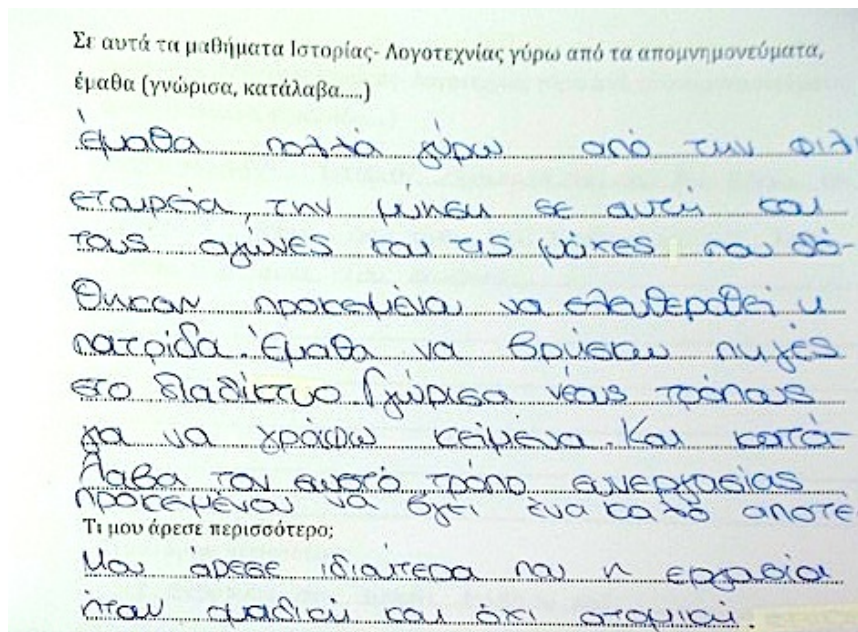 Σε αυτά τα μαθήματα Ιστορίας- Λογοτεχνίας γύρω από τα απομνημονεύματα,
έμαθα (γνώρισα, κατάλαβα.....)
έμαθα πολλά γύρω από την Φιλι
εταιρεία, την μύηση σε αυτή και
τους αγώνες και τις μάχες που δό-
θηκαν προκειμένου να ελευθερωθεί η
πατρίδα. Έμαθα να βρίσκω πηγές
στο διαδίκτυο Γνώρισα νέους τρόπους
για να γράφω κείμενα. Και κατά-
λαβα τον σωστό τρόπο συνεργασίας
προκειμένου να βγει ένα καλό αποτέ
Τι μου άρεσε περισσότερο;
Μου άρεσε ιδιαίτερα που η εργασία
ήταν ομαδική και όχι ατομική.